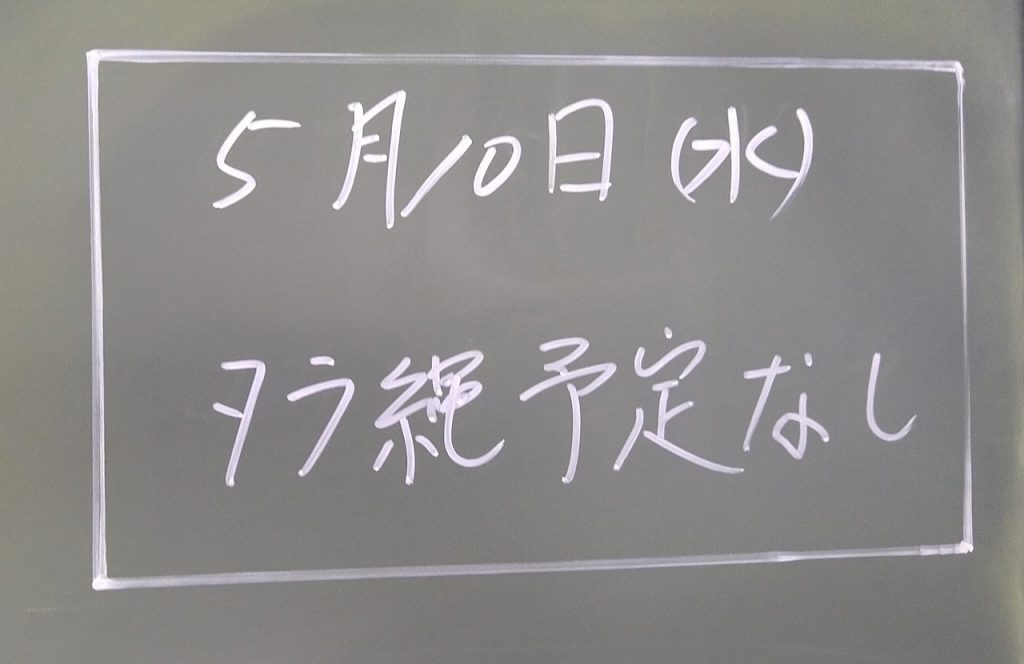 5月10日(水)
タラ縄予定なし